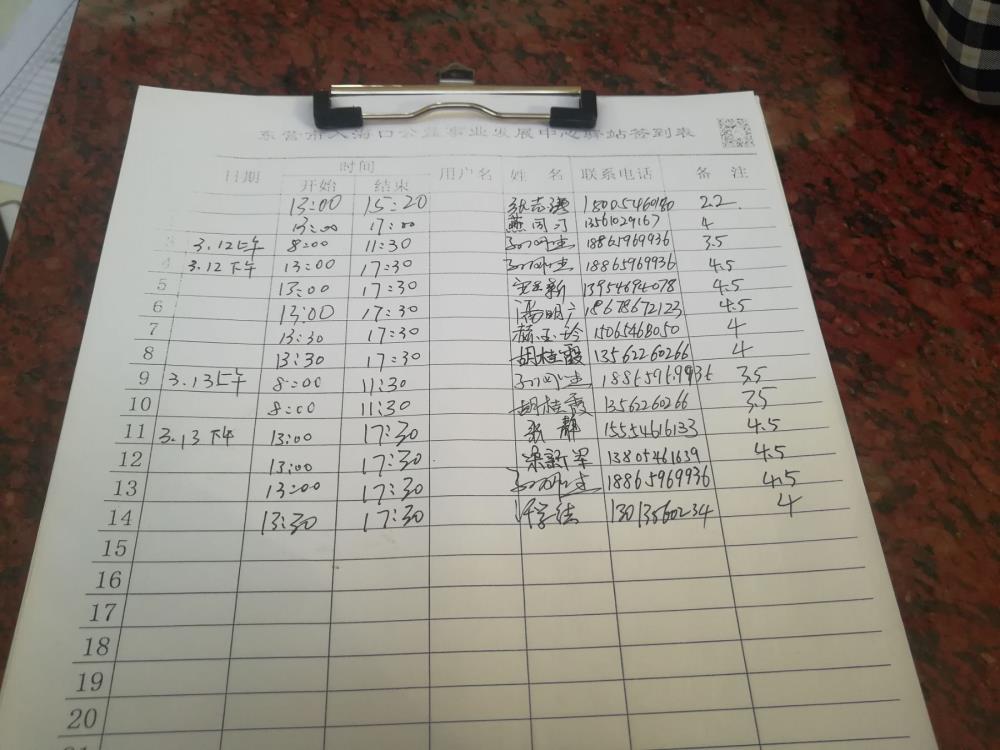 东营市入海口公益事业发展中心驿站签到表
日期 时间 用户名 姓 名 联系电话 备 注
开始 结束
13:00 15:20 15005460180 2.2
13:00 17:00 13561029167 4
3 3.12上午 8:00 11:30 18865969936 3.5
4 3.12下午 13:00 17:30 18865969936 4.5
5 13:00 17:30 13954694078 4.5
6 13:00 17:30 18678672123 4.5
7 13:30 17:30 15065468050 4
8 13:30 17:30 胡桂霞 13562260266 4
9 3.13上午 8:00 11:30 18865969936 3.5
10 8:00 11:30 胡桂霞 13562260266 3.5
11 3.13下午 13:00 17:30 张静 15554616133 4.5
12 13:00 17:30 梁新军 13805461639 4.5
13 13:00 17:30 18865969936 4.5
14 13:30 17:30 13013560234 4
15
16
17
18
19
20